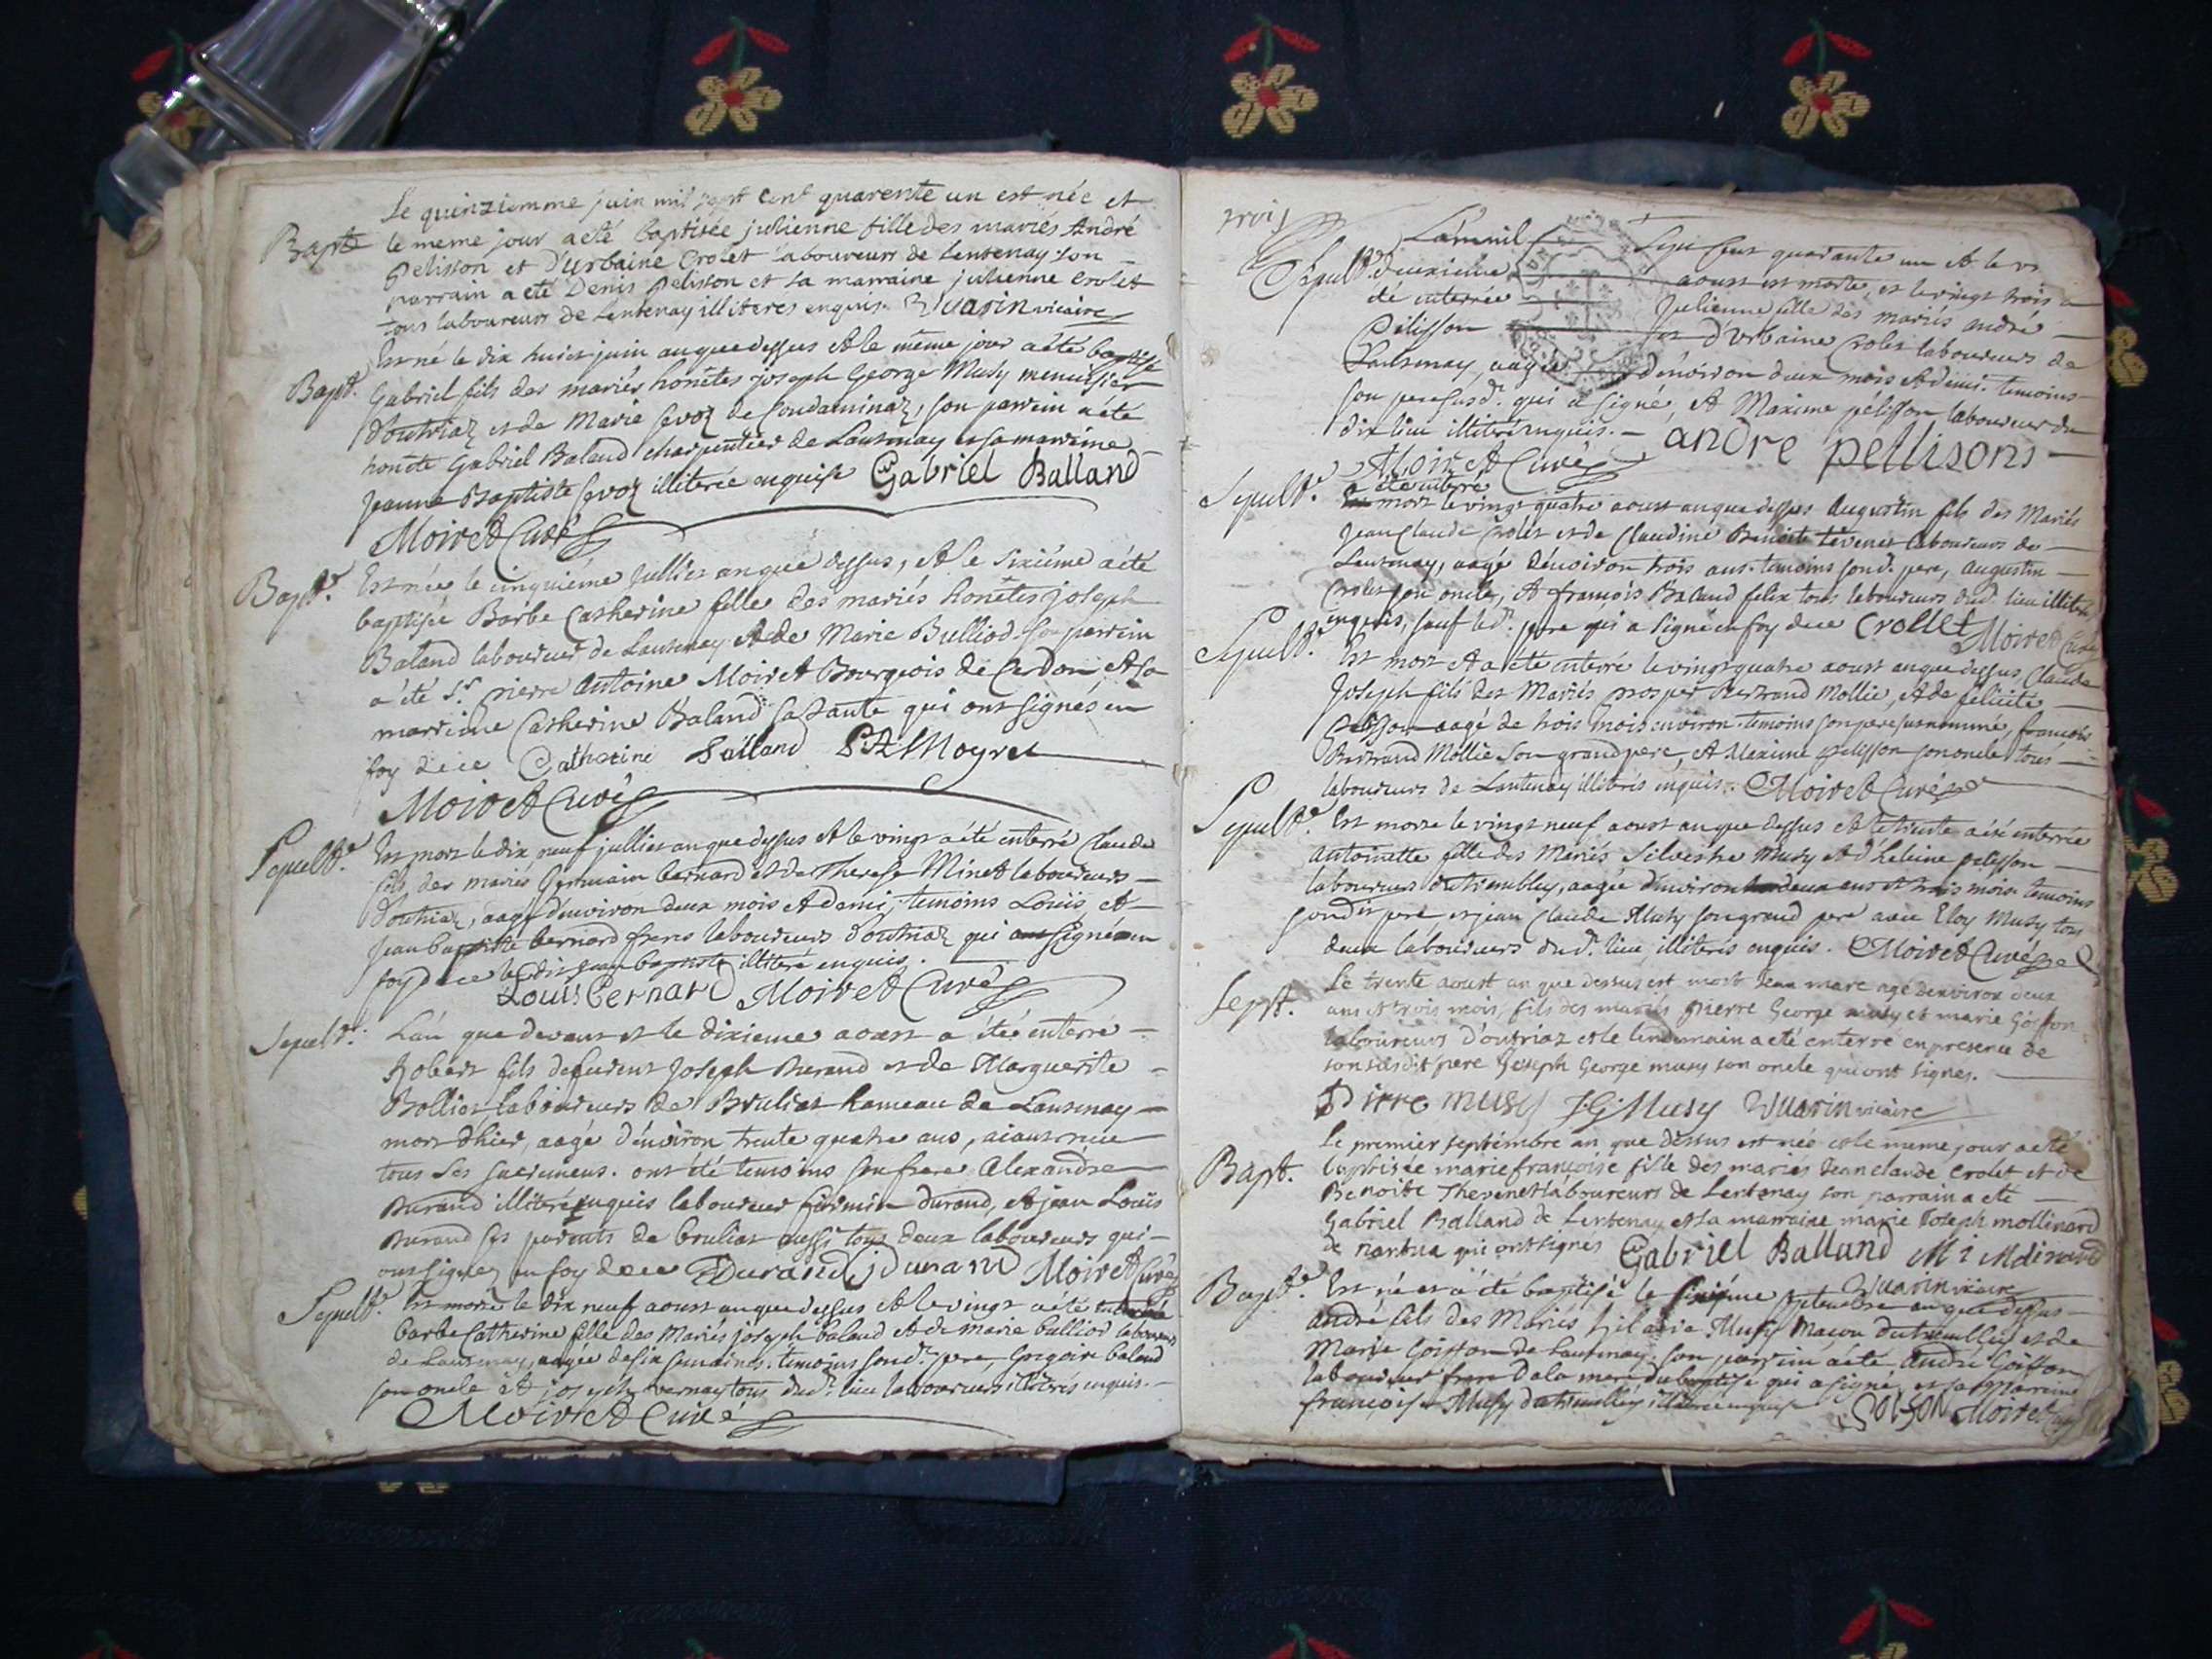 Le quinziemme juin mil sept cent quarente un est née et
Bapt. le meme jour a eté baptisée julienne fille des mariés André
Pelisson et d'urbaine Crolet laboureurs de Lentenay son
parrain a eté Denis pelisson et sa marraine julienne crolet
tous laboureurs de Lentenay illiteres enquis. Vuarin vicaire
Est né le dix huict juin an que dessus et le même jour a été baptisé
Bapt. Gabriel fils des mariés honêtes joseph George Musy menuisier
d'outriaz et de Marie Savoz de Condaminaz, son parrein a été
honête Gabriel Baland charpentier de Lantenay et sa marreine
jeanne Baptiste Savoz illiterée enquise Gabriel Balland
Moiret Curé
Bapt. Est née le cinquiéme jullies an que dessus, et le sixiéme a été
baptisée Barbe Catherine fille des mariés honêtes joseph
Baland laboureur de Lantenay et de Marie Bulliod. son parrein
a été Sr. pierre Antoine Moiret Bourgeois de Cerdon et sa
marreine Catherine Baland sa tante qui ont signés en
foy de ce Catherine Balland PA Moyret
Moiret Curé
Sepult. Est mort le dix neuf jullies an que dessus et le vingt a été enterré Claude
fils des mariés Germain bernard et de Therese Minet laboureurs
d'outriaz, aagé d'environ deux mois et demi, temoins Louis et
jean baptiste bernard freres laboureurs d'outriaz qui signé en
foy de ce ledit jean baptiste illiteré enquis.
Louis Bernard Moiret Curé
Sepult. L'an que devant et le dixieme aoust a été enterré
Robert fils de joseph Durand et de Marguerite
Bolliet laboureurs de Bruliat hameau de Lantenay
mort d'hier, aagé d'environ trente quatre ans, aiant receu
tous ses sacremens. ont été temoins son frere Alexandre
Durand illiteré enquis laboureur firmin durand, et jean Louis
Durand ses parents de bruliat aussi tous deux laboureurs qui
ont signez en foy de ce Durand j durand Moiret Curé
Sepult. Est morte le dix neuf aoust an que dessus et le vingt a été enterrée
barbe Catherine fille des Mariés joseph baland et de marie bulliod laboureurs
de Lantenay, aagée de six semaines. temoins sond. pere, Gregoire baland
son oncle et joseph vernay tous dud. lieu laboureurs illiterés enquis.
Moiret Curé
trois
L'an mil Sept Cent quarante un et le
Sepult. deuxiéme aoust est morte, et le vingt trois a
été enterrée Julienne fille des mariés andré
Pélisson et d'Urbaine Crolet laboureurs de
Lantenay, aagée d'environ deux mois et demi. temoins
son pere susd. qui a signé, et Maxime pélisson laboureur du
dit lieu illiteré enquis. andre pellisons
Moiret Curé
a été enterré
Sepult. mort le vingt quatre aoust an que dessus Augustin fils des Mariés
Jean Claude Crolet et de Claudine Benoite Tévenet laboureurs de
Lantenay, aagé d'environ trois ans. temoins sond. pere, Augustin
Crolet son oncle, et françois Baland felix tous laboureurs dud. lieu illiterés
enquis, sauf led. pere qui a signé en foy de ce Crollet Moiret Curé
Sepult. Est mort et a été enterré le vingt quatre aoust an que dessus Claude
Joseph fils des Mariés prosper Bertrand Mollie, et de felicite
Pelisson aagé de trois mois environ. temoins son pere susnommé, françois
Bertrand Mollie son grand pere, et Maxime pelisson son oncle tous
laboureurs de Lantenay illiterés enquis. Moiret Curé
Sepult. Est morte le vingt neuf aoust an que dessus et le trente a été enterrée
antoinette fille des Mariés Silvestre Musy et d'heleine pelisson
laboureurs du trembley, aagée d'environ deux ans et trois mois. temoins
sondit pere et jean Claude Musy son grand pere avec Eloy Musy tous
deux laboureurs dud. lieu, illiterés enquis. Moiret Curé
Sept. Le trente aoust an que dessus est mort Jean marc agé d'environ deux
ans et trois mois, fils des mariés pierre George musy et marie Goiffon
laboureurs d'outriaz et le lendemain a eté enterré en presence de
son susdit pere Joseph George musy son oncle qui ont signes.
Pirre musy J G Musy Vuarin vicaire
Le premier septembre an que dessus est née et le meme jour a eté
Bapt. baptisée marie françoise fille des mariés Jean claude Crolet et de
Benoite Thevenet laboureurs de Lentenay son parrain a eté
Gabriel Balland de Lentenay et sa marraine marie Joseph mollinard
de nantua qui ont signes Gabriel Balland M i Molinard
Vuarin vicaire
Bapt. Est né et a été baptisé le sixiéme septembre an que dessus
andré fils des Mariés hilarie Musy maçon du trembley et de
Marie Goiffon de Lantenay, son parrein a été André Goiffon
laboureur frere de la mere du baptisé qui a signé, et sa marreine
françoise Musy du trembley illiterée enquise Goifon Moiret Curé